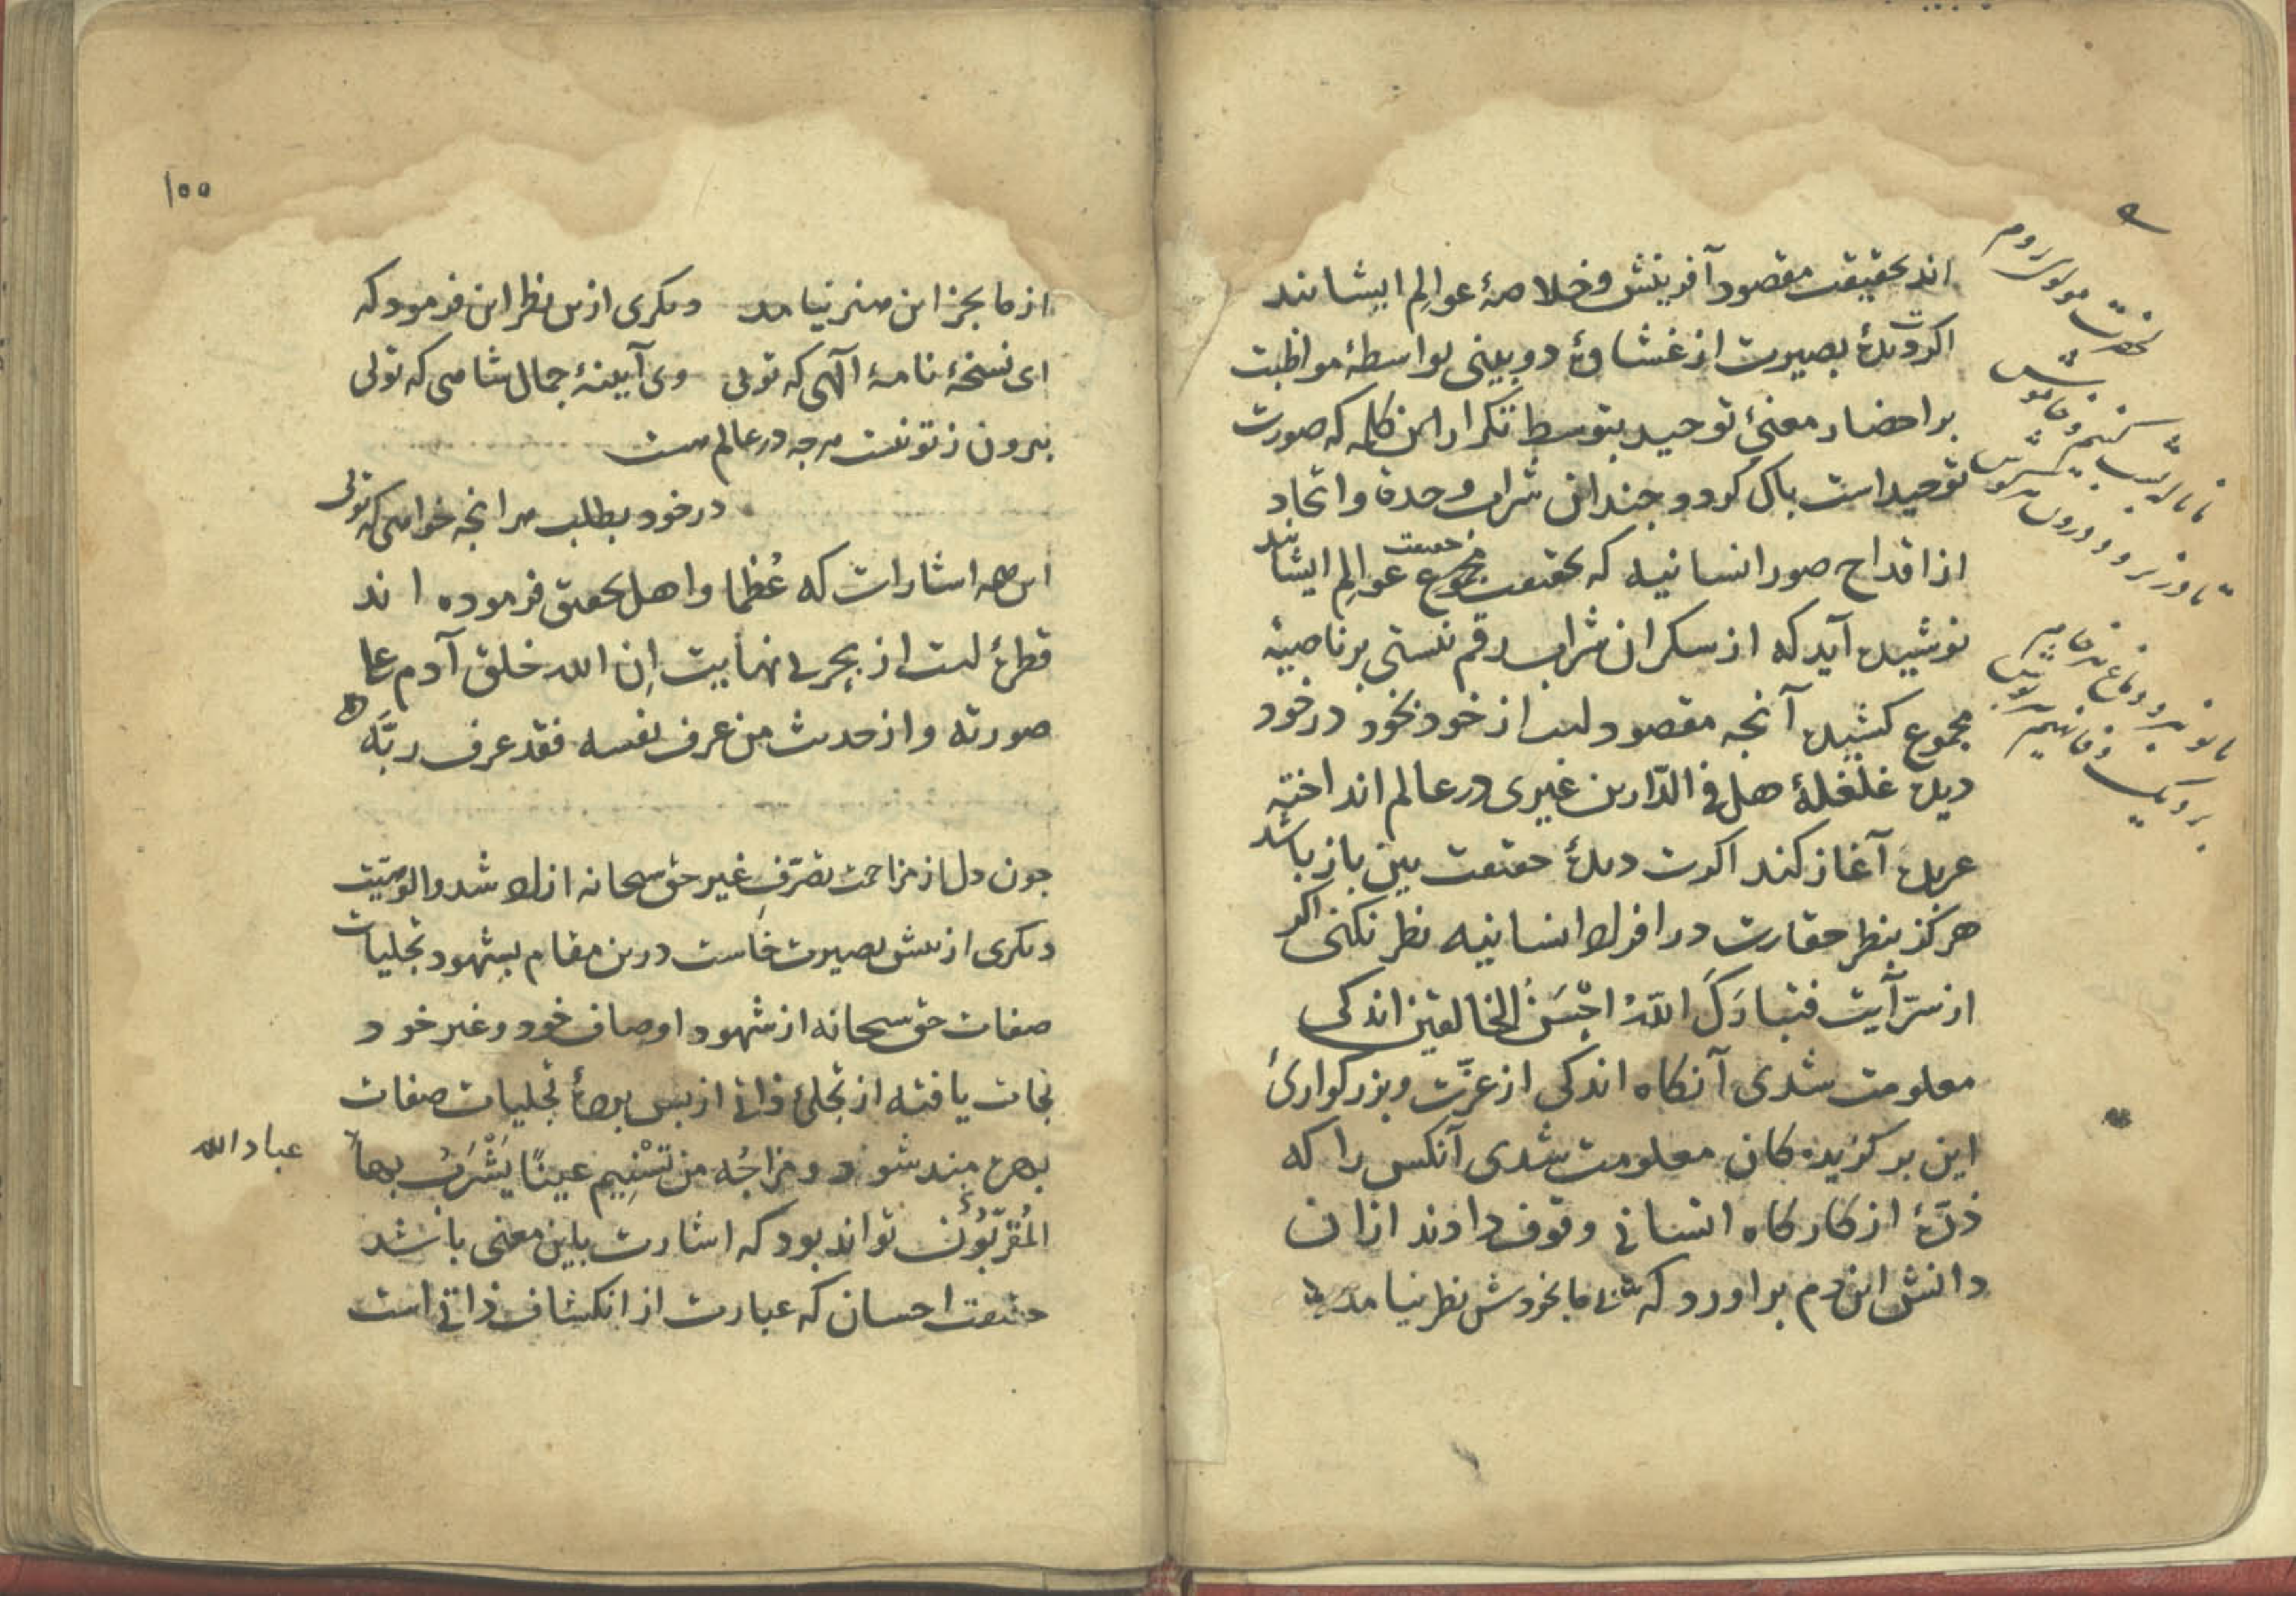 اند بحقیقت مقصود آفرینش و خلاصهٔ عوالم ایشانند
اکرت دیدهٔ بصیرت از غشاوهٔ دوبینی بواسطهٔ مواظبت
بر احضار معنیٔ توحید بتوسط تکرار این کلمه که صورت
توحید است باک کردد و جند ازین شراب وحدة و اتحاد
از اقداح صور انسانیه که بحقیقت مجموع حقیقت عوالم ایشانند
نوشیده آید که از سکر آن شراب رقم نیستی بر ناصیهٔ
مجموع کشیده آنجه مقصود است از خود بخود در خود
دیده غلغلهٔ هل فی الدّارین غیری در عالم انداخته
عربده آغاز کند اکرت دیدهٔ حقیقت بین باز باشد
هرکز بنظر حقارت در افراد انسانیه نظر نکنی اکر
از سرّ آیت فتبارَکَ اللّهُ احْسَنُ الخالقین اندکی
معلومت شدی آنکاه اندکی از عزّت و بزرکواریٔ
این برکزیده کان معلومت شدی آنکس را که
ذرّهٔ از کارکاه انسانی وقوف دادند از ان
دانش این دم براورد که بی ما بخودش نظر نیامد
حضرت مولوی روم
۱۰۰
از ما بجز این هنر نیامد دیکری ازین نظر این فرمود که
ای نسخهٔ نامهٔ آلهی که تویی وی آیینهٔ جمال شاهی که تویی
بیرون ز تو نیست هرجه در عالم هست
در خود بطلب هرانجه خواهی که تویی
این همه اشارات که عُظما و اهل تحقیق فرموده اند
قطرهٔ است از بحر بی نهایت إن الله خلق آدم علی
صورته و از حدیث من عرف نفسه فقد عرف ربَّه
جون دل از مزاحمت تصرّفِ غیر حق سبحانه ازاد شد و الوهیّت
دیکری از بیش بصیرت خاست درین مقام بشهود تجلیات
صفات حق سبحانه از شهود اوصاف خود و غیر خود
نجات یافته از تجلیٔ ذاتی از بس بردهٔ تجلیات صفات
بهره مند شود و مزاجُه من تَسْنِیم عینًا یَشْرَبُ بها
عباد الله
المُقرّبُون تواند بود که اشارت باین معنی باشد
حقیقت احسان که عبارت از انکشاف ذاتی است